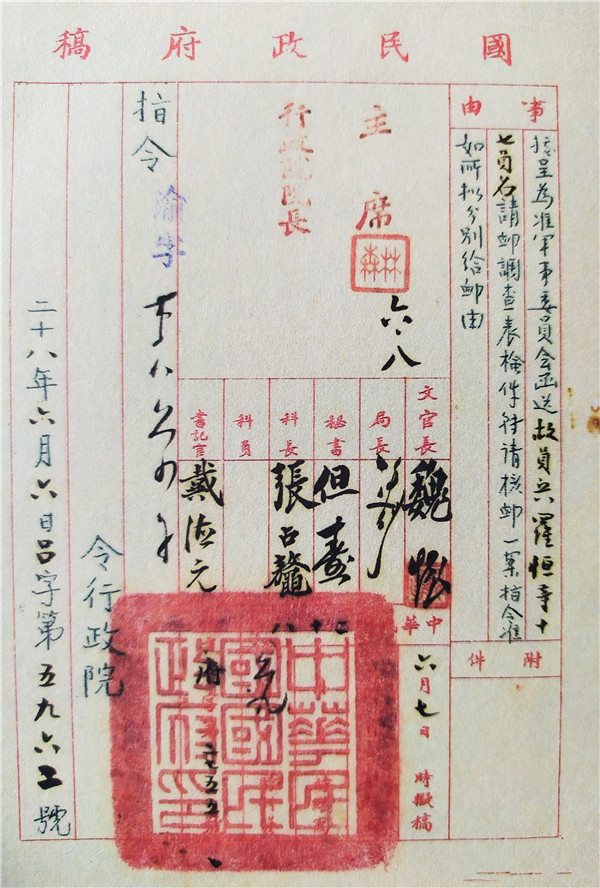 國民政府稿
事由
據呈為准軍事委員會函送故員兵羅恒等十
七員名請卹調查表檢件轉請核卹一案指令准
如所擬分別給卹由
附件
主席
林森
六.八
行政院院長
文官長
魏懷
局長
秘書
但燾
科長
張占鰲
科員
書記官
戴德元
中華
二十八
六月七日 時擬稿
中華民國國民政府印
指令
渝字
令行政院
二十八年六月六日呂字第五九六二號